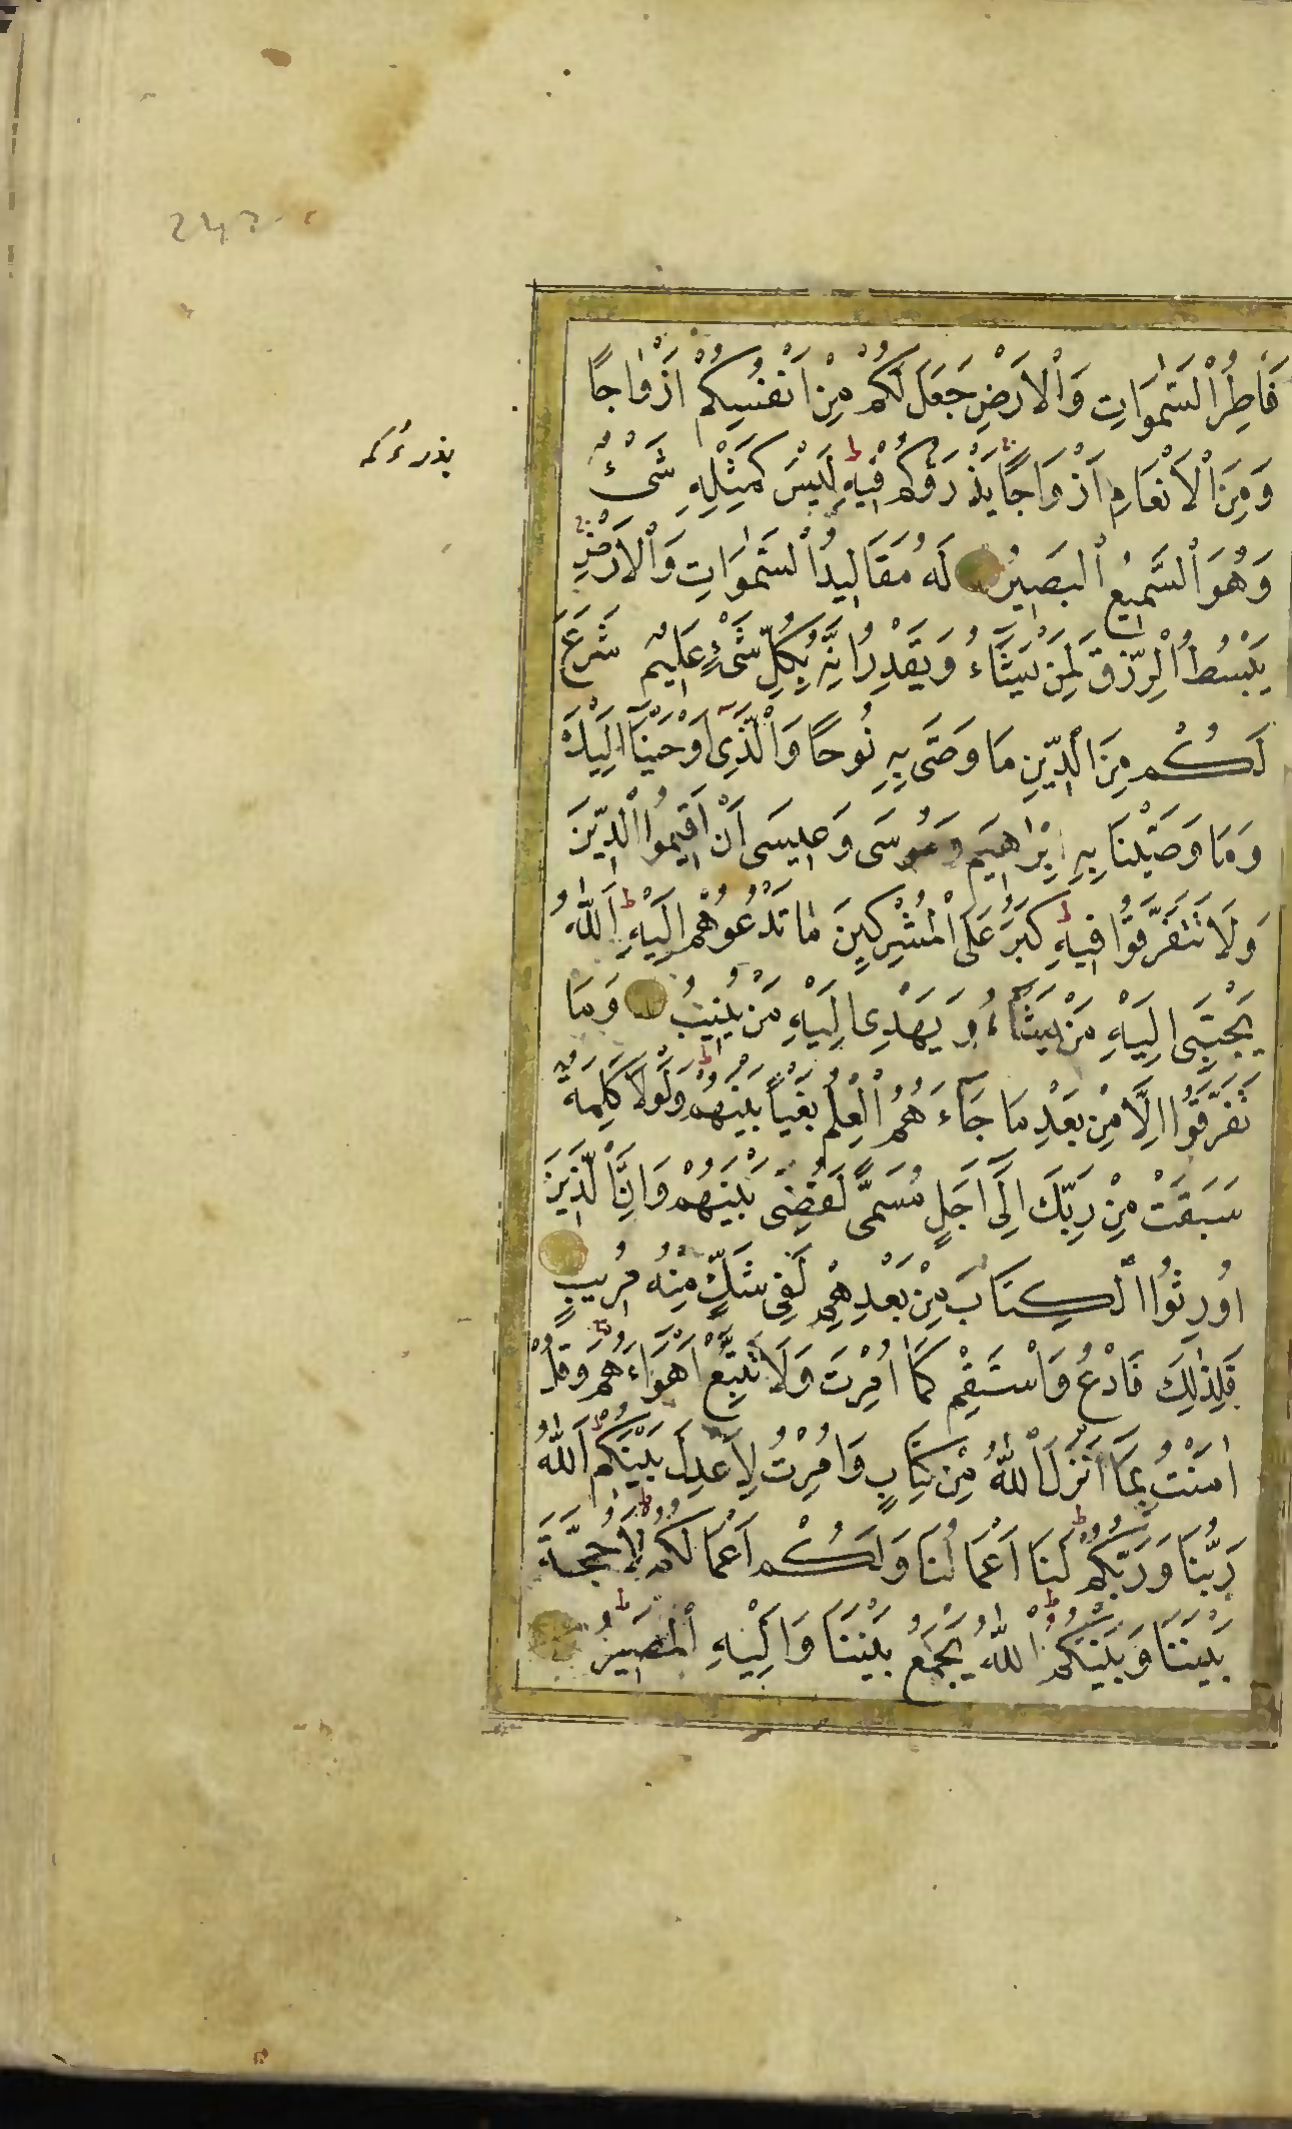 فَاطِرُ السَّمٰوَاتِ وَالْاَرْضِ جَعَلَ لَكُمْ مِنْ اَنْفُسِكُمْ اَزْوَاجًا
وَمِنَ الْاَنْعَامِ اَزْوَاجًا يَذْرَؤُكُمْ فِيهِ لَيْسَ كَمِثْلِهِ شَىْءٌ
يذرءكم
وَهُوَ السَّمِيعُ الْبَصِيرُ لَهُ مَقَالِيدُ السَّمٰوَاتِ وَالْاَرْضِ
يَبْسُطُ الرِّزْقَ لِمَنْ يَشَاءُ وَيَقْدِرُ اِنَّهُ بِكُلِّ شَىْءٍ عَلِيمٌ شَرَعَ
لَكُمْ مِنَ الدِّينِ مَا وَصَّى بِهِ نُوحًا وَالَّذِى اَوْحَيْنَا اِلَيْكَ
وَمَا وَصَّيْنَا بِهِ اِبْرٰاهِيمَ وَمُوسَى وَعِيسَى اَنْ اَقِيمُوا الدِّينَ
وَلَا تَتَفَرَّقُوا فِيهِ كَبُرَ عَلَى الْمُشْرِكِينَ مَا تَدْعُوهُمْ اِلَيْهِ اَللّٰهُ
يَجْتَبِى اِلَيْهِ مَنْ يَشَاءُ وَيَهْدِى اِلَيْهِ مَنْ يُنِيبُ وَمَا
تَفَرَّقُوا اِلَّا مِنْ بَعْدِ مَا جَاءَهُمُ الْعِلْمُ بَغْيًا بَيْنَهُمْ وَلَوْلَا كَلِمَةٌ
سَبَقَتْ مِنْ رَبِّكَ اِلَى اَجَلٍ مُسَمًّى لَقُضِىَ بَيْنَهُمْ وَاِنَّ الَّذِينَ
اُورِثُوا الْكِتَابَ مِنْ بَعْدِهِمْ لَفِى شَكٍّ مِنْهُ مُرِيبٍ
فَلِذٰلِكَ فَادْعُ وَاسْتَقِمْ كَمَا اُمِرْتَ وَلَا تَتَّبِعْ اَهْوَاءَهُمْ وَقُلْ
اٰمَنْتُ بِمَا اَنْزَلَ اللّٰهُ مِنْ كِتَابٍ وَاُمِرْتُ لِاَعْدِلَ بَيْنَكُمْ اَللّٰهُ
رَبُّنَا وَرَبُّكُمْ لَنَا اَعْمَالُنَا وَلَكُمْ اَعْمَالُكُمْ لَا حُجَّةَ
بَيْنَنَا وَبَيْنَكُمُ اللّٰهُ يَجْمَعُ بَيْنَنَا وَاِلَيْهِ الْمَصِيرُ